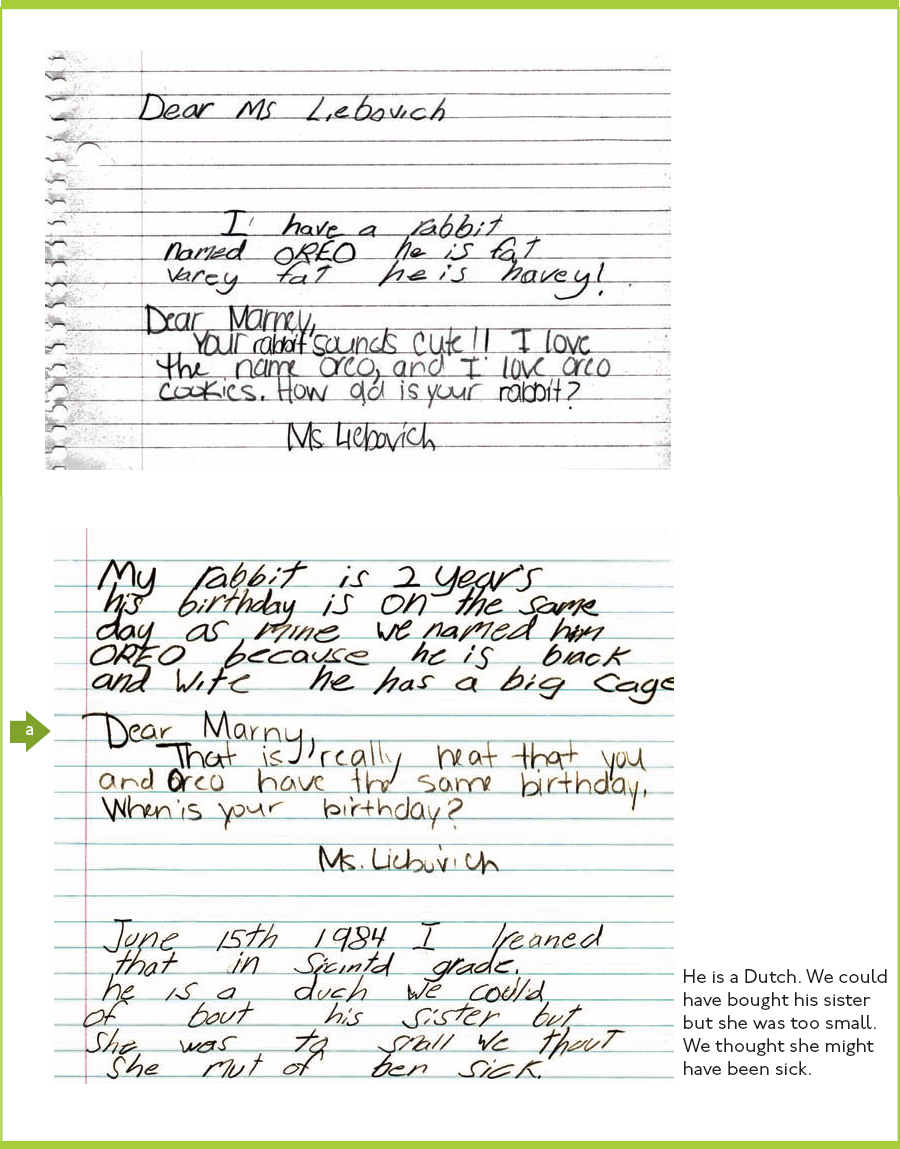 Dear Ms Liebovich
I have a rabbit
named OREO he is fat
varey fat he is havey!
Dear Marney,
Your rabbit sounds cute!! I love
the name Oreo, and I love oreo
cookies. How old is your rabbit?
Ms Liebovich
My rabbit is 2 year's
his birthday is on the same
day as mine we named him
OREO because he is black
and wite he has a big cage
a
Dear Marny,
That is really neat that you
and Oreo have the same birthday.
When is your birthday?
Ms. Liebovich
June 15th 1984 I lreaned
that in Sicintd grade.
he is a duch we could
of bout his sister but
She was to small we thout
She mut of ben sick.
He is a Dutch. We could
have bought his sister
but she was too small.
We thought she might
have been sick.